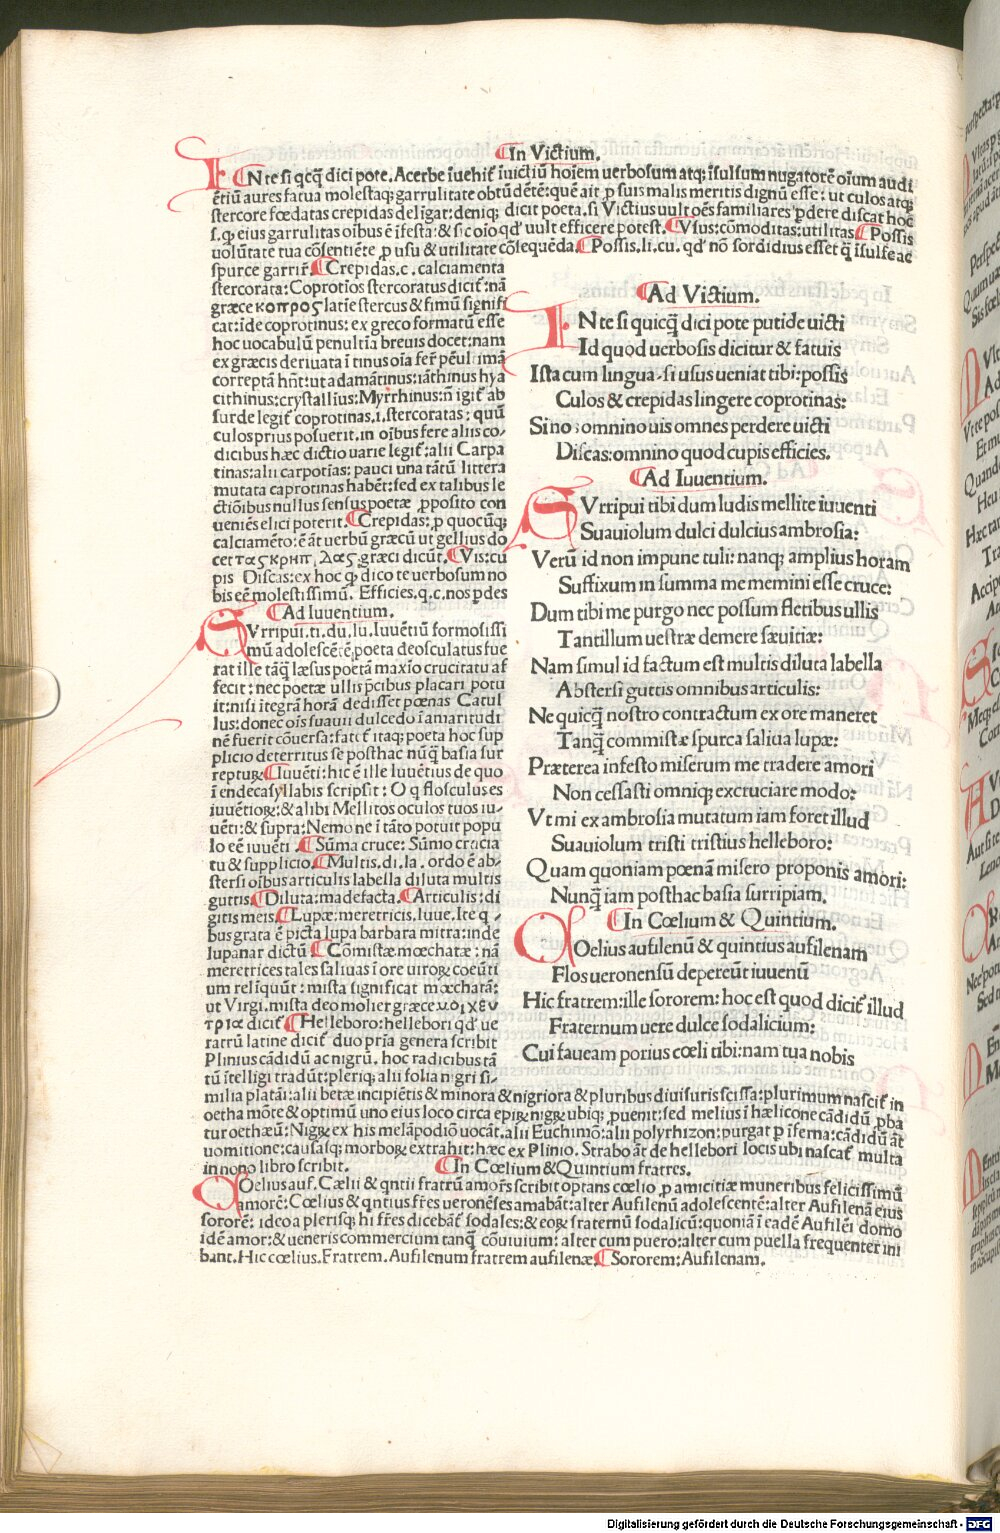 In Victium.
IN te si qcq̃ dici pote. Acerbe ĩuehit̃ ĩuictiũ hoĩem uerbosum atq; ĩsulsum nugatorẽ oĩum audi
ẽtiũ aures fatua molestaq; garrulitate obtũdẽtẽ: quẽ ait p̱ suis malis meritis dignũ esse: ut culos atq;
stercore fœdatas crepidas deligat: deniq; dicit poeta. si Victius uult oẽs familiares p̱dere discat hoc
.s. ꝙ eius garrulitas oĩbus ẽ ĩfesta: & sic oĩo qđ uult efficere potest. Vsus: cõmoditas: utilitas. Possis
uolũtate tua cõsentiẽte p̱ usu & utilitate cõsequẽda. Possis. li. cu. qđ nõ sordidius esset q̃ ĩsulse ac
spurce garrir̃. Crepidas. c. calciamenta
stercorata: Coprotios stercoratus dicit̃: nã
græce κοπρος latĩe stercus & fimũ signifi
cat: ide coprotinus: ex greco formatũ esse
hoc uocabulũ penultĩa breuis docet: nam
ex græcis deriuata ĩ tinus oĩa fer̃ pẽul ĩmã
correptã hñt: ut adamãtinus: iãthinus hya
cithinus: crystallius: Myrrhinus: ñ igit̃ ab
surde legit̃ coprotinas. i. stercoratas: quũ
culos prius posuerit. in oĩbus fere aliis co-
dicibus hæc dictio uarie legit̃: alii Carpa
tinas: alii carpotias: pauci una tãtũ littera
mutata caprotinas habẽt: sed ex talibus le
ctiõibus nullus sensus poetæ p̱posito con
ueniẽs elici poterit. Crepidas: p̱ quocũq;
calciamẽto: ẽ ãt uerbũ græcũ ut gellius do
cet τας κρηπιδας græci dicũt. Vis: cu
pis Discas: ex hoc ꝙ dico te uerbosum no
bis eẽ molestissimũ. Efficies. q. c. nos p̱des
Ad Iuuentium.
SVrripui. ti. du. lu. Iuuẽtiũ formosissi
mũ adolescẽtẽ poeta deosculatus fue
rat ille tãq̃ læsus poetã maxĩo crucitatu af
fecit: nec poetæ ullis p̃cibus placari potu
it: nisi ĩtegrã horã dedisset pœnas Catul
lus: donec oĩs suauii dulcedo ĩ amaritudi
nẽ fuerit cõuersa: fatet̃ itaq; poeta hoc sup
plicio deterritus se posthac nũq̃ basia sur
repturꝝ Iuuẽti: hic ẽ ille Iuuẽtius de quo
ĩ endecasyllabis scripsit: O q flosculus es
iuuẽtioꝝ: & alibi Mellitos oculos tuos iu-
uẽti: & supra: Nemo ne ĩ tãto potuit popu
lo eẽ iuuẽti. Sũma cruce: Sũmo crucia
tu & supplicio. Multis. di. la. ordo ẽ ab-
stersi oĩbus articulis labella diluta multis
guttis. Diluta: madefacta. Articulis: di
gitis meis. Lupæ: meretricis. Iuue. Ite q-
bus grata ẽ picta lupa barbara mitra: inde
lupanar dictũ Cõmistæ: mœchatæ: nã
meretrices tales saliuas ĩ ore uiroꝝ coeũti
um relĩquũt: mista significat mœchatã:
ut Virgi. mista deo molier græce μοιχευ
τρια dicit̃ Helleboro: hellebori qđ ue
ratrũ latine dicit̃ duo prĩa genera scribit
Plinius cãdidũ ac nigrũ. hoc radicibus tã
tũ ĩtelligi tradũt: pleriq; alii folia nigri si-
milia platãi: alii betæ incipiẽtis & minora & nigriora & pluribus diuisuris scissa: plurimum nascit̃ in
oetha mõte & optimũ uno eius loco circa epirꝝ nigrꝝ ubiq; puenit: sed melius ĩ hælicone cãdidũ p̱ba
tur oethæũ: Nigrꝝ ex his melãpodiõ uocãt. alii Euchimõ: alii polyrhizon: purgat p̱ ĩferna: cãdidũ ãt
uomitione: causasq; morboꝝ extrahit: hæc ex Plinio. Strabo ãt de hellebori locis ubi nascat̃ multa
in nono libro scribit. In Cœlium & Quintium fratres.
COelius auf. Cælii & qntii fratrũ amor̃s scribit optans cœlio p̱ amicitiæ muneribus felicissimũ
amorẽ: Cœlius & qntius fr̃es ueronẽses amabãt: alter Aufilenũ adolescentẽ: alter Aufilenã eius
sororẽ: ideo a plerisq; hi fr̃es dicebãt̃ sodales: & eoꝝ fraternũ sodaliciũ: quoniã ĩ eadẽ Aufilẽi domo
idẽ amor: & ueneris commercium tanq̃ cõuiuium: alter cum puero: alter cum puella frequenter ini
bant. Hic cœlius. Fratrem. Aufilenum fratrem aufilenæ. Sororem: Aufilenam.
Ad Victium.
IN te si quicq̃ dici pote putide uicti
Id quod uerbosis dicitur & fatuis
Ista cum lingua. si usus ueniat tibi: possis
Culos & crepidas lingere coprotinas:
Si nos omnino uis omnes perdere uicti
Discas: omnino quod cupis efficies.
Ad Iuuentium.
SVrripui tibi dum ludis mellite iuuenti
Suauiolum dulci dulcius ambrosia:
Verũ id non impune tuli: nanq; amplius horam
Suffixum in summa me memini esse cruce:
Dum tibi me purgo nec possum fletibus ullis
Tantillum uestræ demere sæuitiæ:
Nam simul id factum est multis diluta labella
Abstersi guttis omnibus articulis:
Ne quicq̃ nostro contractum ex ore maneret
Tanq̃ commistæ spurca saliua lupæ:
Præterea infesto miserum me tradere amori
Non cessasti omniq; excruciare modo:
Vt mi ex ambrosia mutatum iam foret illud
Suauiolum tristi tristius helleboro:
Quam quoniam pœnã misero proponis amori:
Nunq̃ iam posthac basia surripiam.
In Cœlium & Quintium.
COelius aufilenũ & quintius aufilenam
Flos ueronensũ depereũt iuuenũ
Hic fratrem: ille sororem: hoc est quod dicit̃ illud
Fraternum uere dulce sodalicium:
Cui faueam porius cœli tibi: nam tua nobis
Digitalisierung gefördert durch die Deutsche Forschungsgemeinschaft - DFG